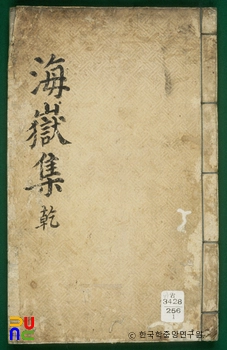 海嶽集 乾
古
3428
256
1
PUNE
© 한국학중앙연구원